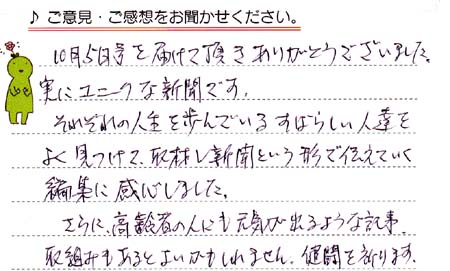 ♪ ご意見・ご感想をお聞かせください。
10月5日号を届けて頂きありがとうございました。
実にユニークな新聞です。
それぞれの人生を歩んでいるすばらしい人達を
よく見つけて、取材し新聞という形で伝えていく
編集に感心しました。
さらに、高齢者の人にも元気が出るような記事、
取組みもあるとよいかもしれません。健闘を祈ります。